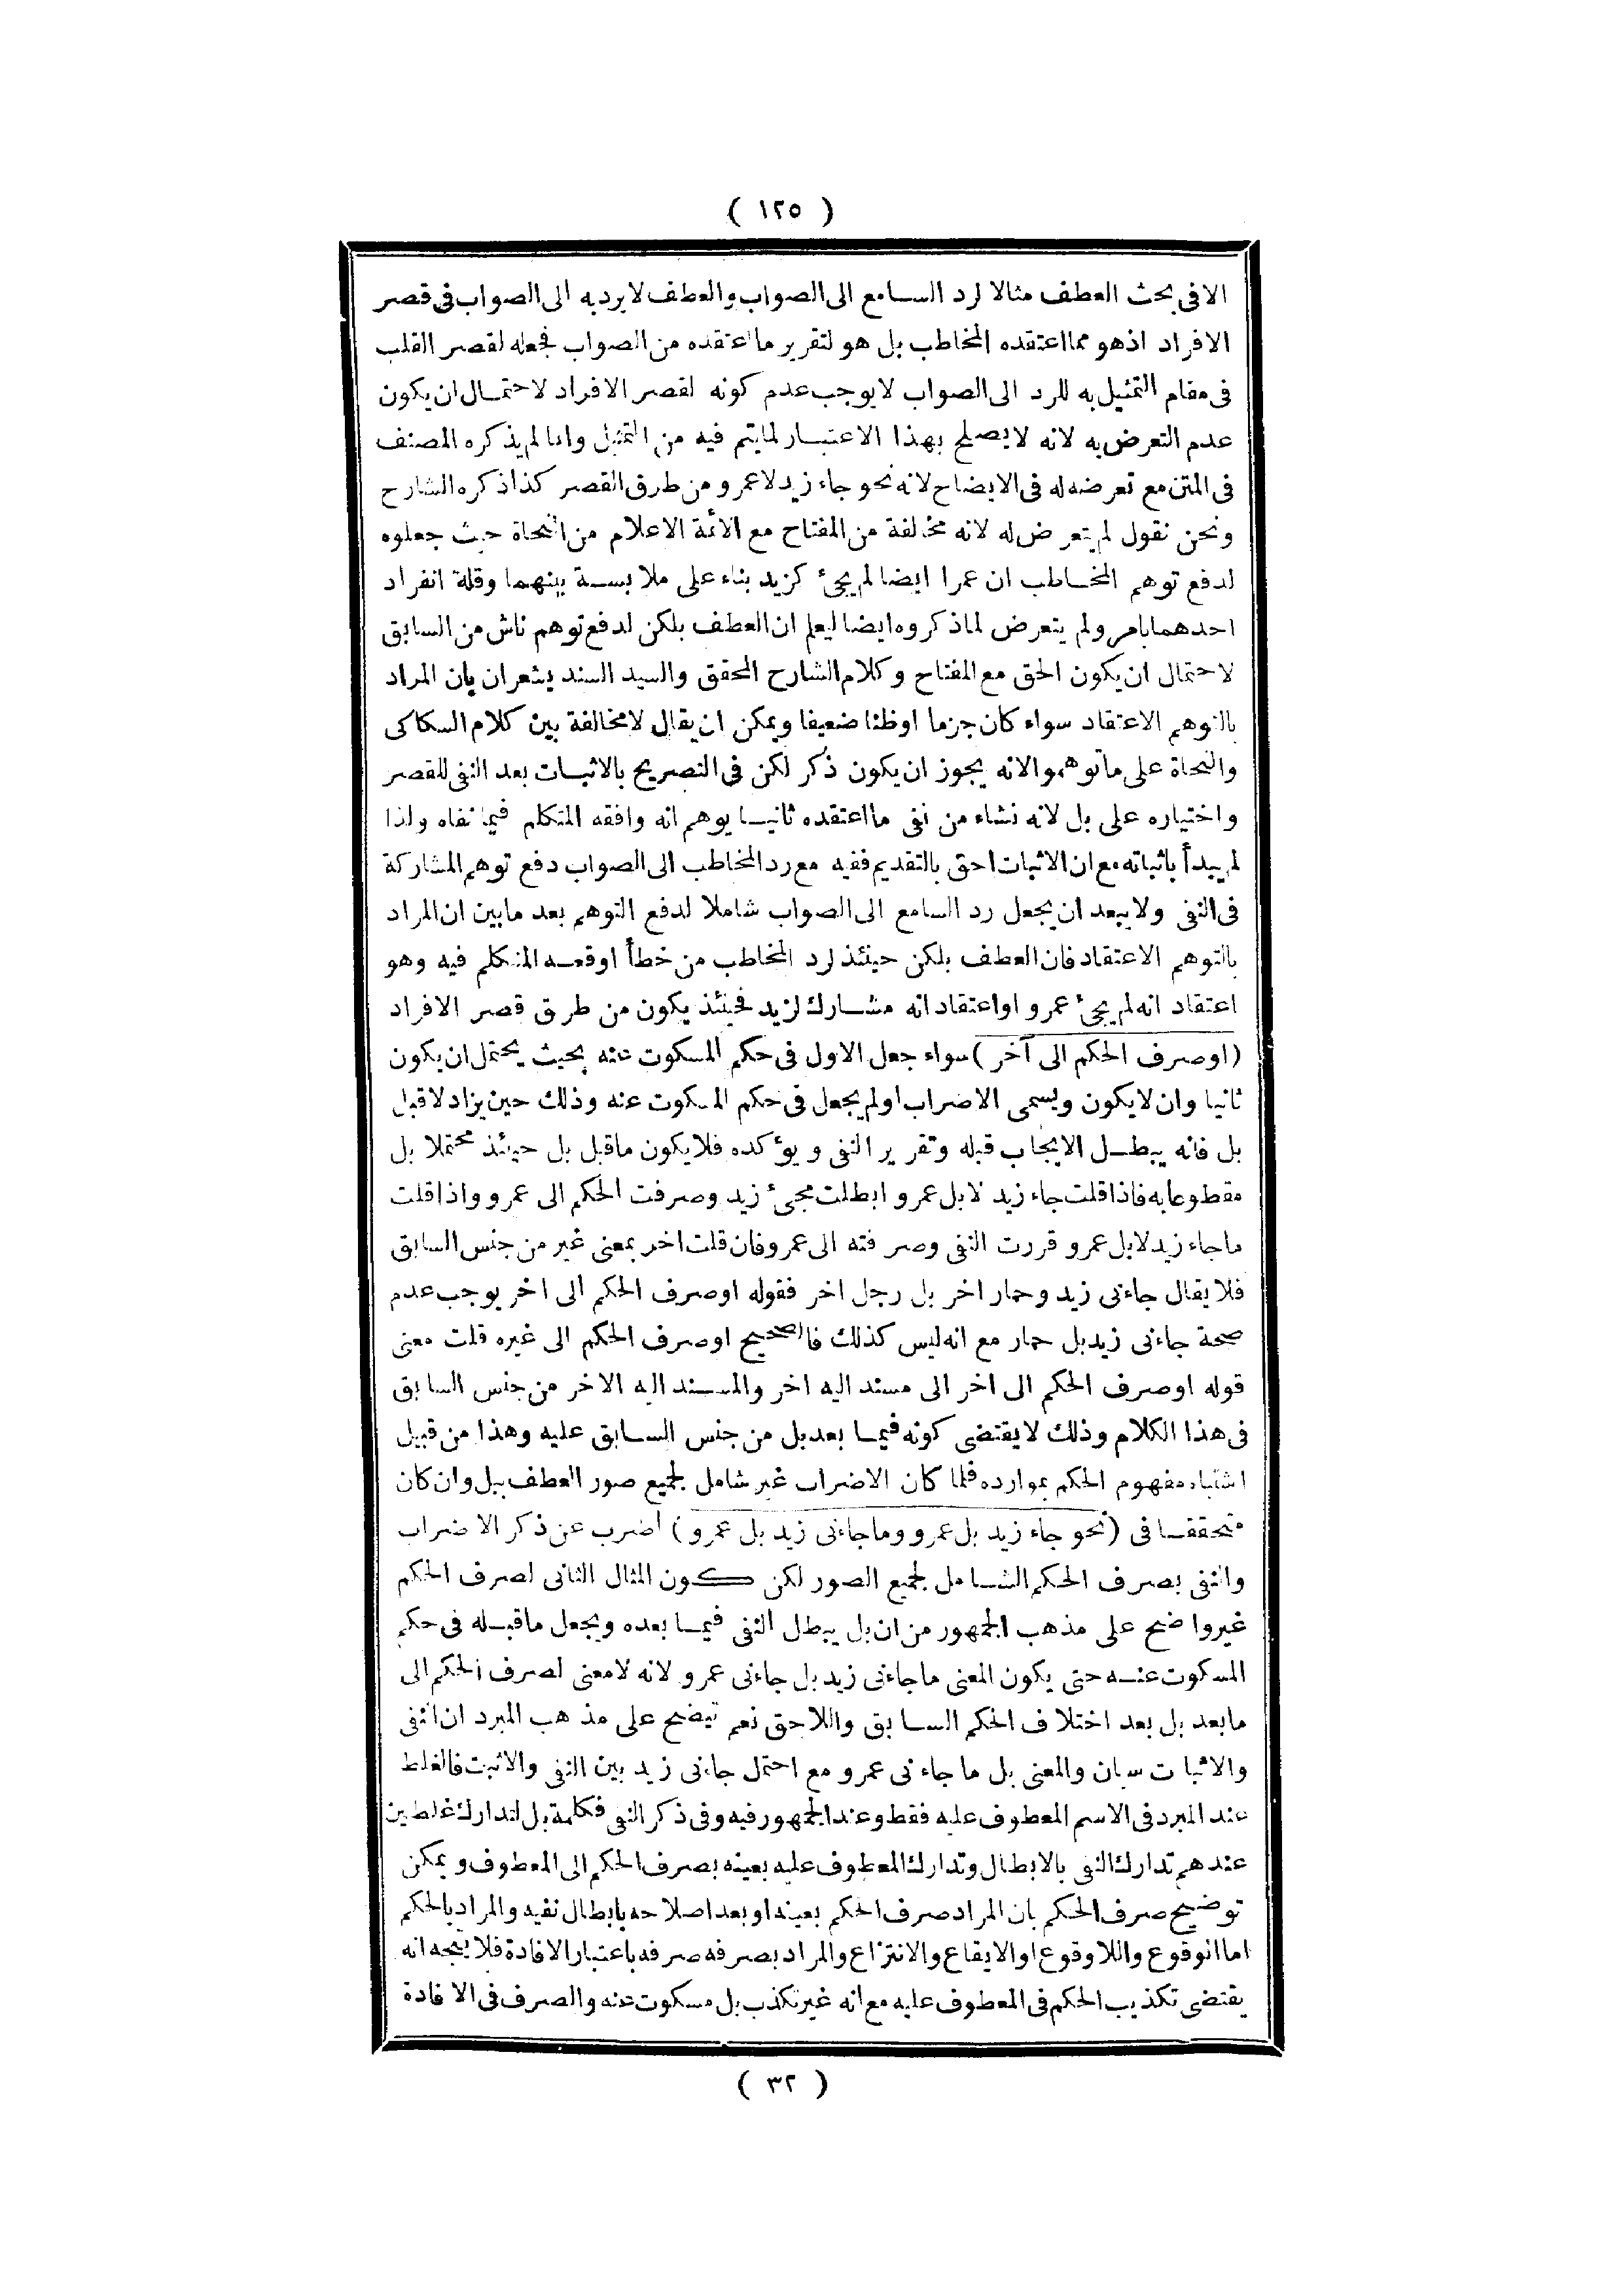 ( ١٢٥ )
الا فى بحث العطف مثالا لرد السامع الى الصواب والعطف لا يرد به الى الصواب فى قصر
الافراد اذ هو مما اعتقده المخاطب بل هو لتقرير ما اعتقده من الصواب فجعله لقصر القلب
فى مقام التمثيل به للرد الى الصواب لا يوجب عدم كونه لقصر الافراد لاحتمال ان يكون
عدم التعرض به لانه لا يصلح بهذا الاعتبار لما يتم فيه من التمثيل وانما لم يذكره المصنف
فى المتن مع تعرضه له فى الايضاح لانه نحو جاء زيد لا عمرو من طرق القصر كذا ذكره الشارح
ونحن نقول لم يتعرض له لانه مخالفة من المفتاح مع الائمة الاعلام من النحاة حيث جعلوه
لدفع توهم المخاطب ان عمرا ايضا لم يجئ كزيد بناء على ملابسة بينهما وقلة انفراد
احدهما بامر ولم يتعرض لما ذكروه ايضا ليعلم ان العطف بلكن لدفع توهم ناش من السابق
لاحتمال ان يكون الحق مع المفتاح وكلام الشارح المحقق والسيد السند يشعران بان المراد
بالتوهم الاعتقاد سواء كان جزما اوظنا ضعيفا ويمكن ان يقال لا مخالفة بين كلام السكاكى
والنحاة على ما توهموا لانه يجوز ان يكون ذكر لكن فى التصريح بالاثبات بعد النفى للقصر
واختياره على بل لانه نشاء من نفى ما اعتقده ثانيا يوهم انه وافقه المتكلم فيما نفاه ولذا
لم يبدأ باثباته مع ان الاثبات احق بالتقديم ففيه مع رد المخاطب الى الصواب دفع توهم المشاركة
فى النفى ولا يبعد ان يجعل رد السامع الى الصواب شاملا لدفع التوهم بعد ما بين ان المراد
بالتوهم الاعتقاد فان العطف بلكن حينئذ لرد المخاطب من خطأ اوقعه المتكلم فيه وهو
اعتقاد انه لم يجئ عمرو او اعتقاد انه مشارك لزيد فحينئذ يكون من طرق قصر الافراد
(او صرف الحكم الى آخر) سواء جعل الاول فى حكم المسكوت عنه بحيث يحتمل ان يكون
ثانيا وان لا يكون ويسمى الاضراب اولم يجعل فى حكم المسكوت عنه وذلك حين يزاد لا قبل
بل فانه يبطل الايجاب قبله وتقرير النفى ويؤكده فلا يكون ما قبل بل حينئذ محتملا بل
مقطوعا به فاذا قلت جاء زيد لا بل عمرو ابطلت مجئ زيد وصرفت الحكم الى عمرو واذا قلت
ما جاء زيد لا بل عمرو قررت النفى وصرفته الى عمرو فان قلت اخر بمعنى غير من جنس السابق
فلا يقال جاءنى زيد وحمار اخر بل رجل اخر فقوله اوصرف الحكم الى اخر يوجب عدم
صحة جاءنى زيد بل حمار مع انه ليس كذلك فالصحيح اوصرف الحكم الى غيره قلت معنى
قوله اوصرف الحكم الى اخر الى مسند اليه اخر والمسند اليه الاخر من جنس السابق
فى هذا الكلام وذلك لا يقتضى كونه فيما بعد بل من جنس السابق عليه وهذا من قبيل
اشتباه مفهوم الحكم بموارده فلما كان الاضراب غير شامل لجميع صور العطف ببل وان كان
متحققا فى (نحو جاء زيد بل عمرو وما جاءنى زيد بل عمرو) اضرب عن ذكر الاضراب
واتى بصرف الحكم الشامل لجميع الصور لكن كون المثال الثانى لصرف الحكم
غير واضح على مذهب الجمهور من ان بل يبطل النفى فيما بعده ويجعل ما قبله فى حكم
المسكوت عنه حتى يكون المعنى ما جاءنى زيد بل جاءنى عمرو لانه لا معنى لصرف الحكم الى
ما بعد بل بعد اختلاف الحكم السابق واللاحق نعم يتضح على مذهب المبرد ان النفى
والاثبات سيان والمعنى بل ما جاءنى عمرو مع احتمل جاءنى زيد بين النفى والاثبت فالغلط
عند المبرد فى الاسم المعطوف عليه فقط وعند الجمهور فيه وفى ذكر النفى فكلمة بل لتدارك غلطين
عندهم تدارك النفى بالابطال وتدارك المعطوف عليه بعينه بصرف الحكم الى المعطوف ويمكن
توضيح صرف الحكم بان المراد صرف الحكم بعينه او بعد اصلاحه بابطال نفيه والمراد بالحكم
اما الوقوع واللا وقوع او الايقاع والانتزاع والمراد بصرفه صرفه باعتبار الافادة فلا يتجه انه
يقتضى تكذيب الحكم فى المعطوف عليه مع انه غير تكذب بل مسكوت عنه والصرف فى الافادة
( ٣٢ )